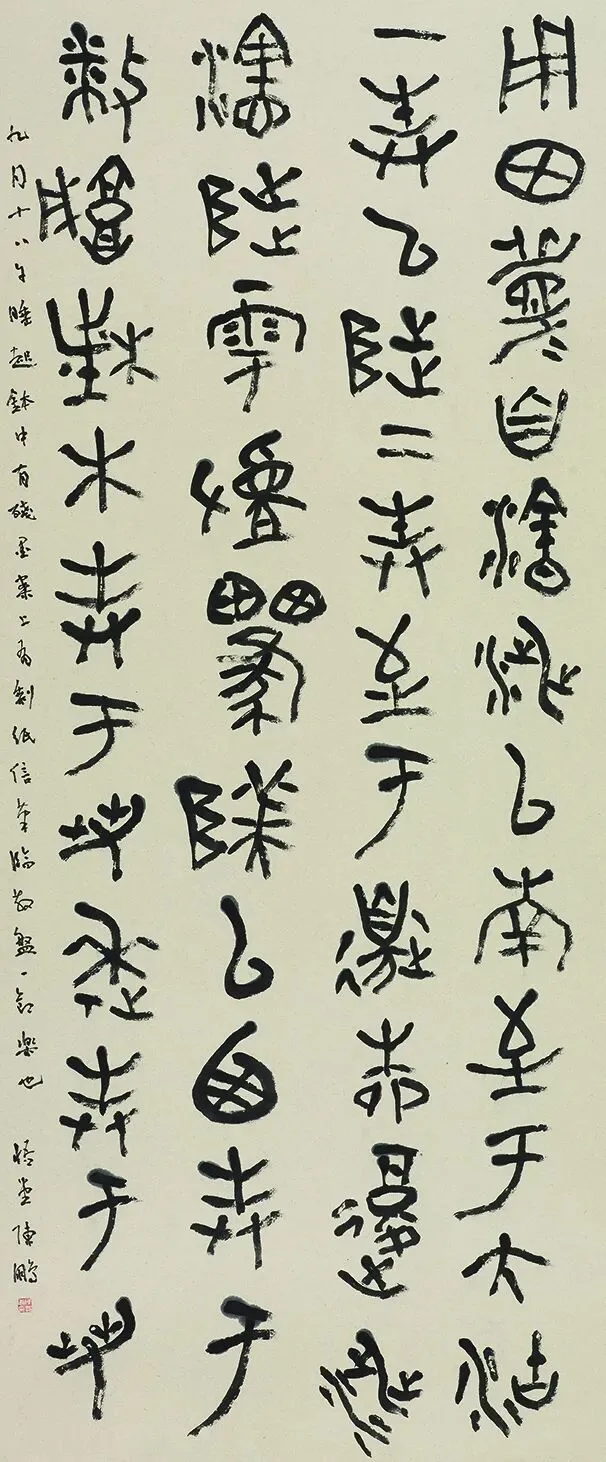 用田眉自瀗涉以南至于大沽
一封以陟二封至于邊柳復涉
瀗陟雩𠭯陕以西封于
敝城楮木封于芻逨封于芻
九月十八午睡起鉢中有殘墨案上有剩紙信筆臨散盤一節樂也 悟堂陳鵬